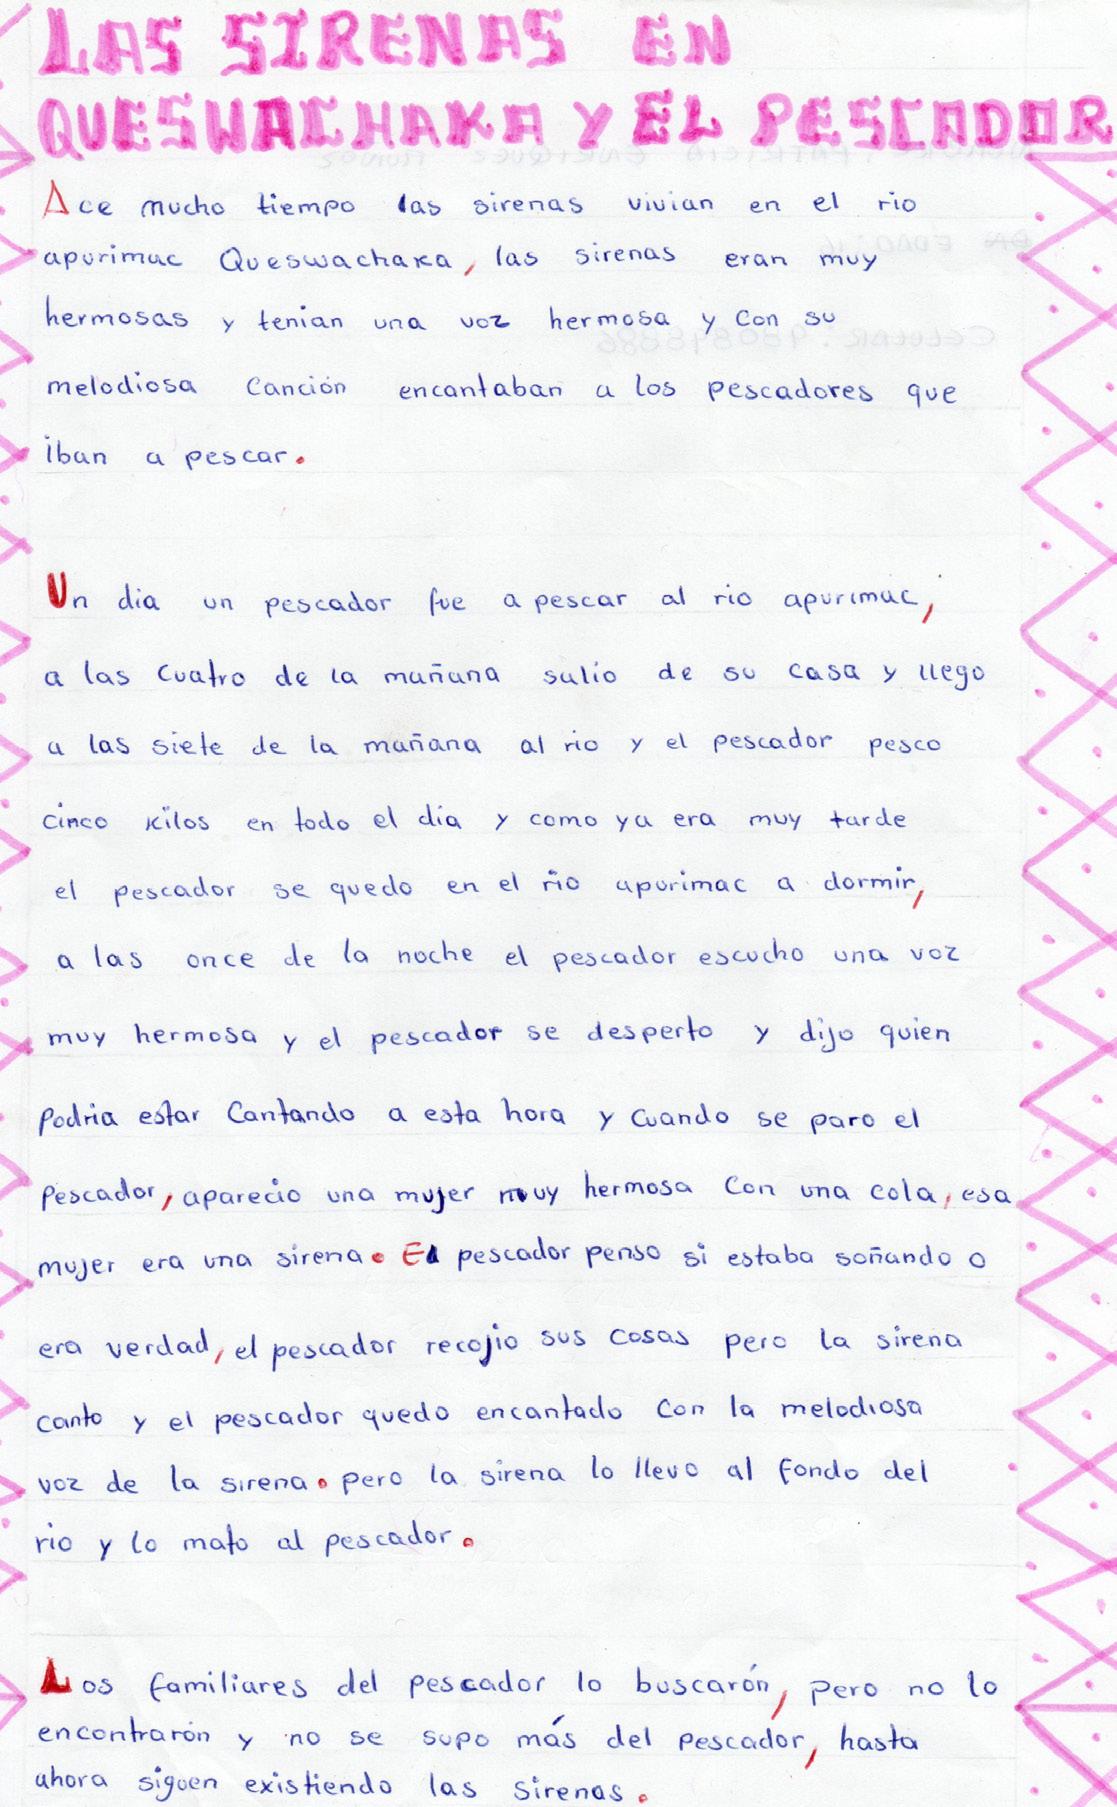 LAS SIRENAS EN
QUESWACHAKA Y EL PESCADOR
Ace mucho tiempo las sirenas vivian en el rio
apurimac Queswachaka, las sirenas eran muy
hermosas y tenian una voz hermosa y con su
melodiosa canción encantaban a los pescadores que
iban a pescar.
Un dia un pescador fue a pescar al rio apurimac,
a las cuatro de la mañana salio de su casa y llego
a las siete de la mañana al rio y el pescador pesco
cinco kilos en todo el dia y como ya era muy tarde
el pescador se quedo en el rio apurimac a dormir,
a las once de la noche el pescador escucho una voz
muy hermosa y el pescador se desperto y dijo quien
podria estar cantando a esta hora y cuando se paro el
pescador, aparecio una mujer muy hermosa con una cola, esa
mujer era una sirena. El pescador penso si estaba soñando o
era verdad, el pescador recojio sus cosas pero la sirena
canto y el pescador quedo encantado con la melodiosa
voz de la sirena. pero la sirena lo llevo al fondo del
rio y lo mato al pescador.
Los familiares del pescador lo buscarón, pero no lo
encontrarón y no se supo más del pescador, hasta
ahora siguen existiendo las sirenas.